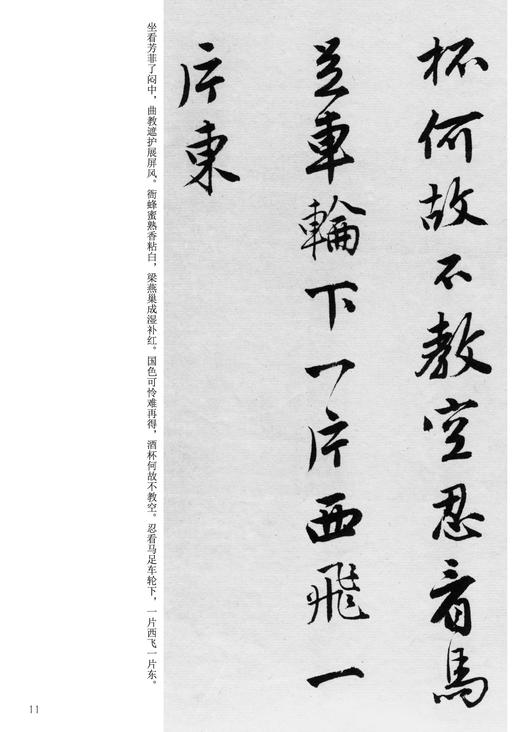 杯何故不教空忍看馬
足車輪下一片西飛一
片東
坐看芳菲了闷中，曲教遮护展屏风。衙蜂蜜熟香粘白，梁燕巢成湿补红。国色可怜难再得，酒杯何故不教空。忍看马足车轮下，一片西飞一片东。
11